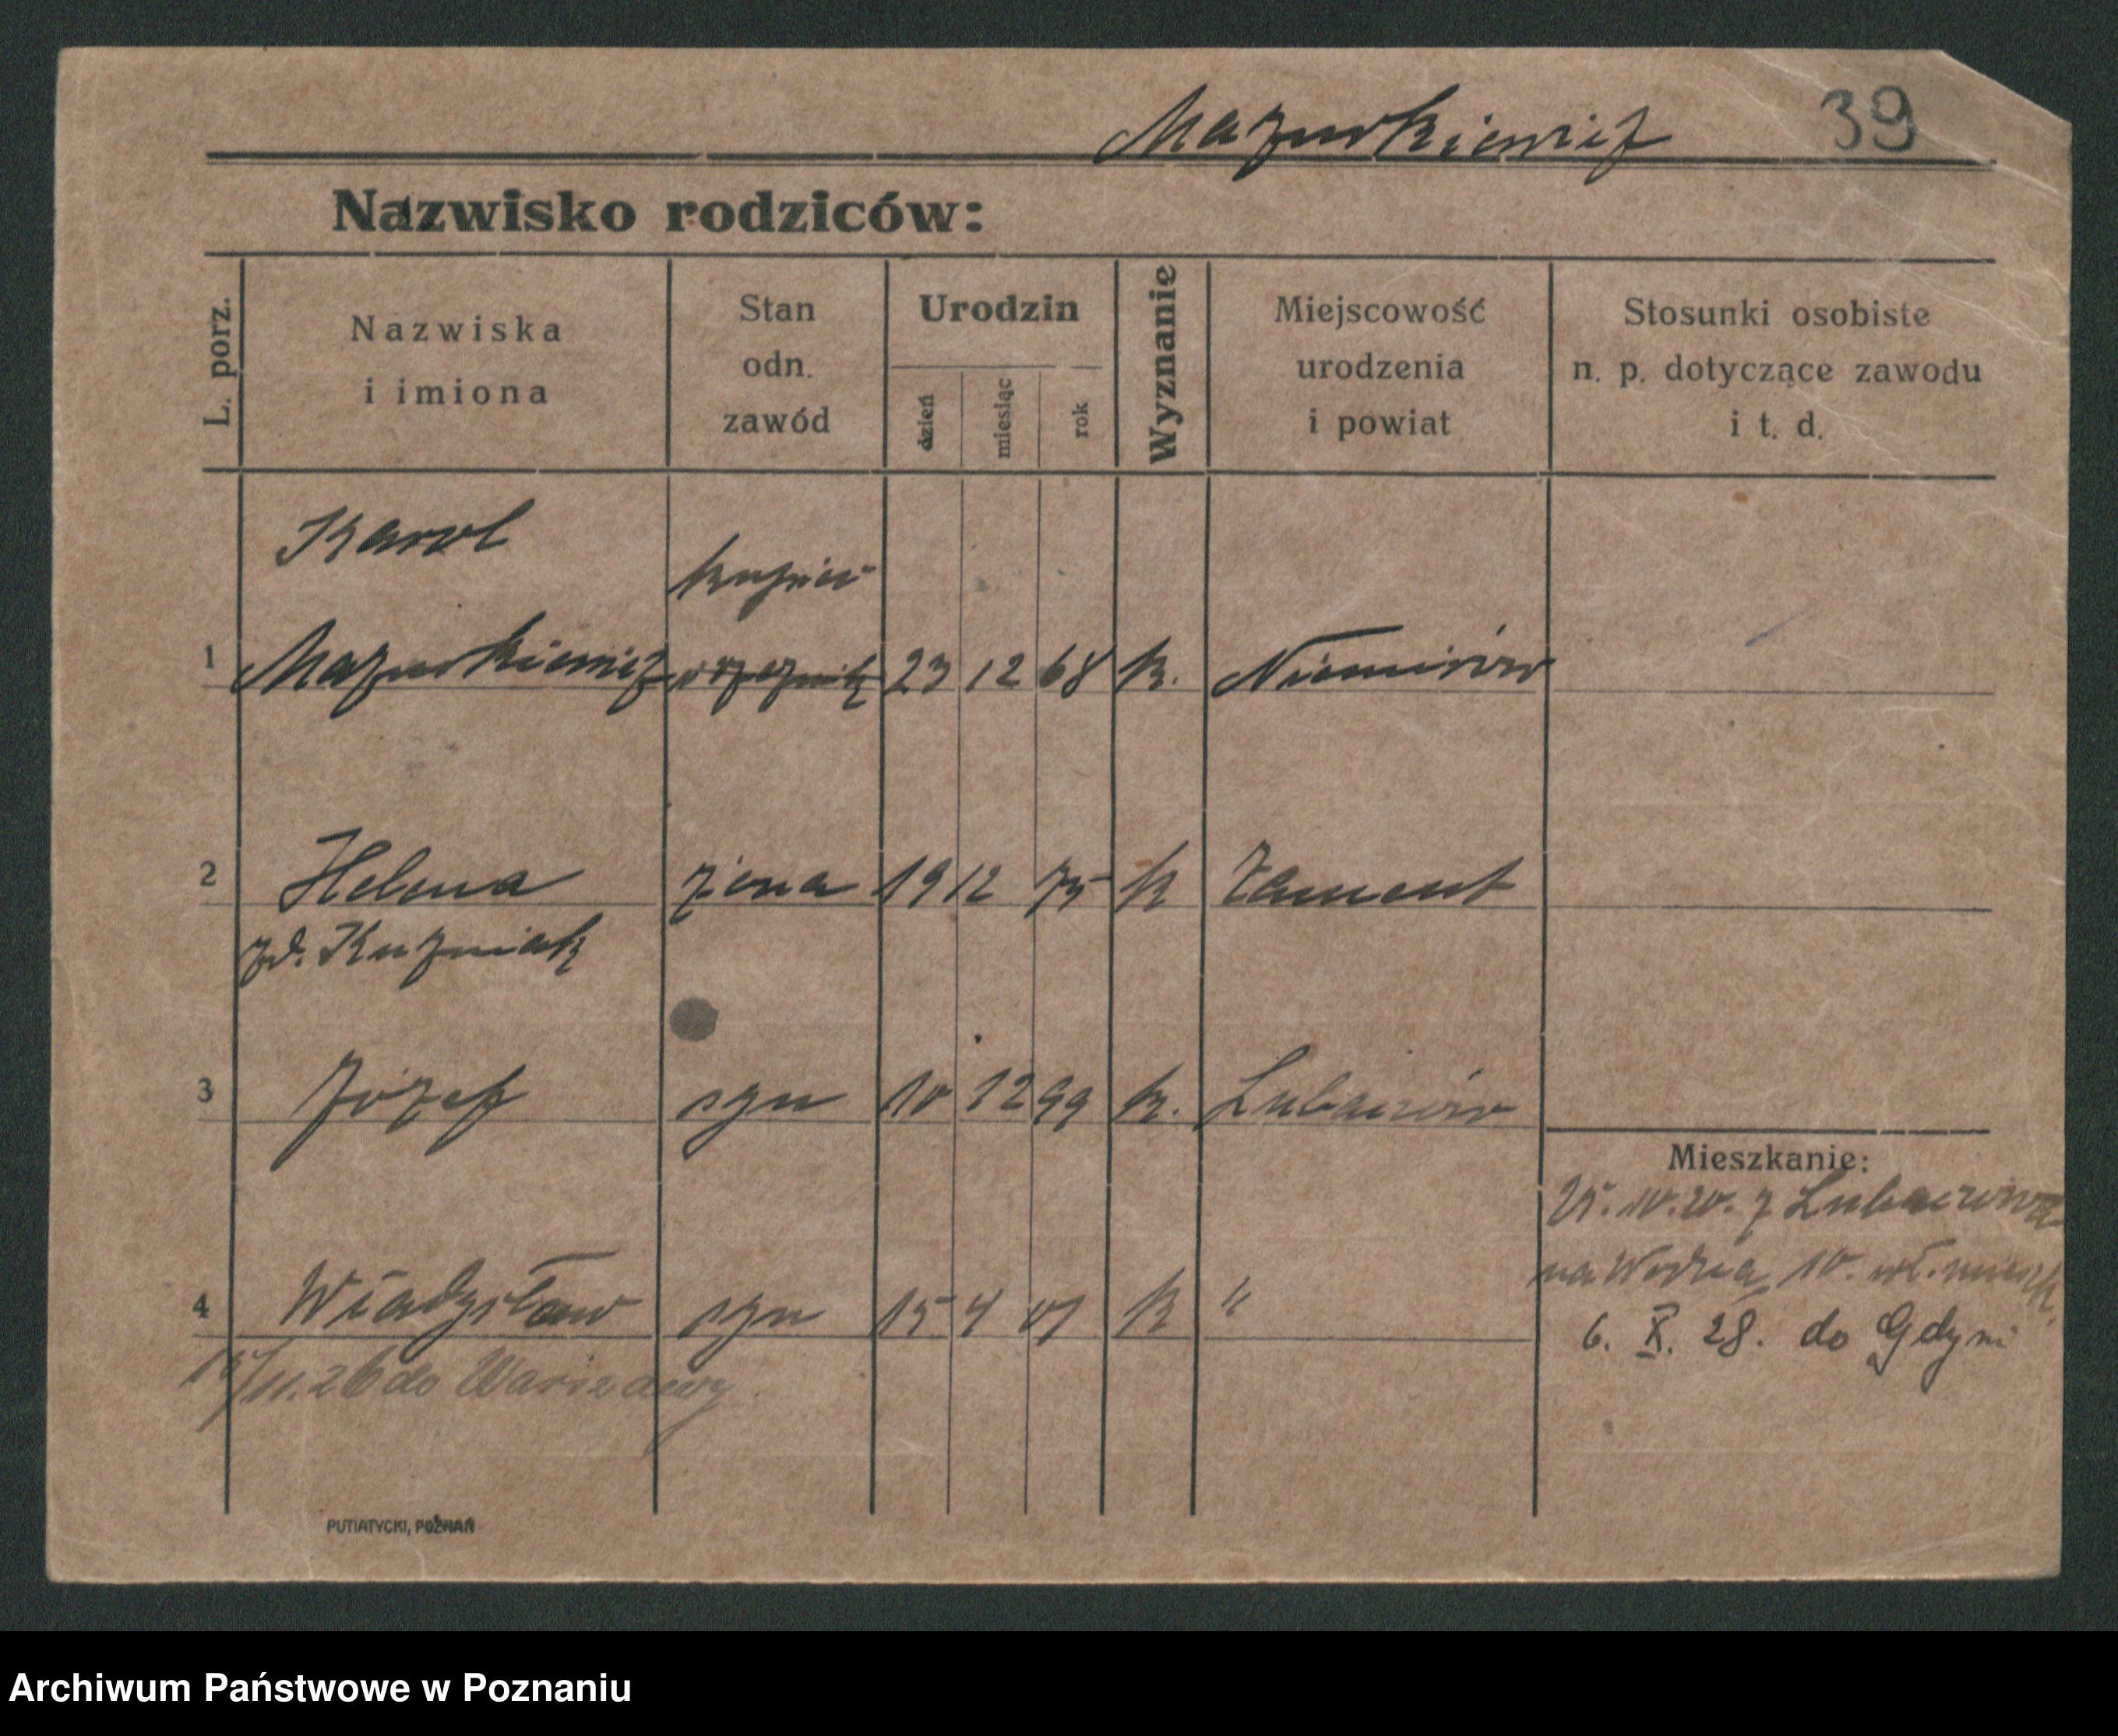 Mazurkiewicz 39
Nazwisko rodziców:
L. porz.
Nazwiska
i imiona
Stan
odn.
zawód
Urodzin
dzień
miesiąc
rok
Wyznanie
Miejscowość
urodzenia
i powiat
Stosunki osobiste
n. p. dotyczące zawodu
i t. d.
Karol
kupiec
1 Mazurkiewicz 23 12 68 k. Niemirów
2 Helena żona 19 12 75 k
zd. Kuźniak
3 Józef syn 10 12 99 k. Lubaczów
Mieszkanie:
z Lubaczowa
na Wodna 10.
4 Władysław syn 15 4 01 k "
6. X. 28. do Gdyni
26 do Warszawy
PUTIATYCKI, POZNAŃ
Archiwum Państwowe w Poznaniu